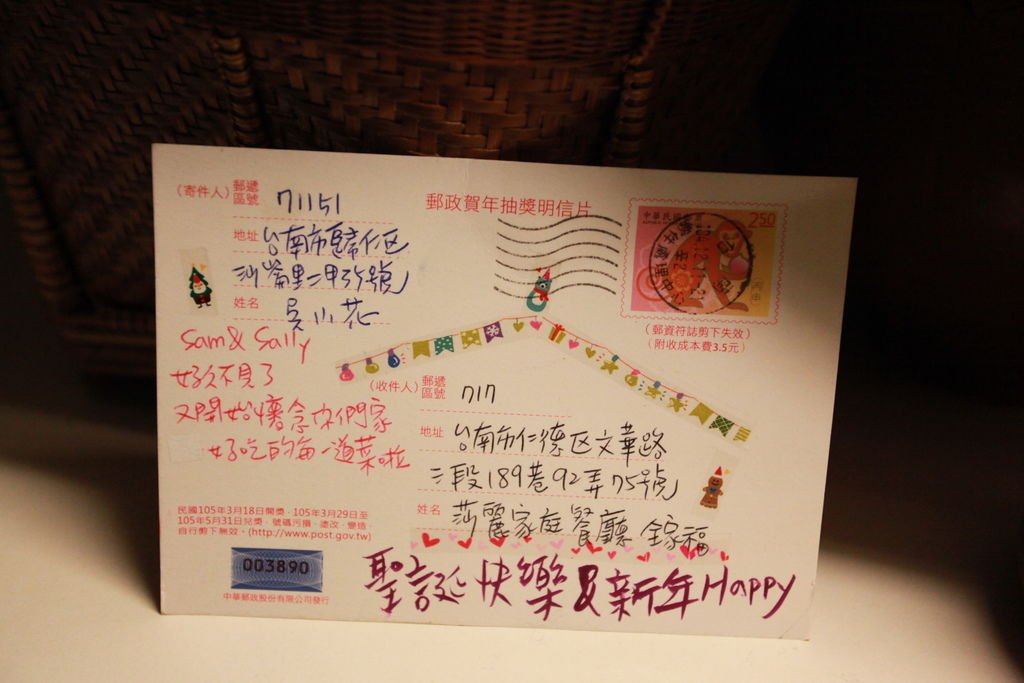 (寄件人) 郵遞區號 71151
郵政賀年抽獎明信片
中華民國郵票
2.50
地址 台南市歸仁区
沙崙里二甲35號
姓名 吳小花
(郵資符誌剪下失效)
(附收成本費3.5元)
Sam & Sally
好久不見了
又開始懷念你們家
好吃的每一道菜啦
(收件人) 郵遞區號 717
地址 台南市仁德区文華路
二段189巷92弄75號
姓名 莎麗家庭餐廳 全家福
民國105年3月18日開獎,105年3月29日至
105年5月31日兌獎,號碼污損、塗改、變造、
自行剪下無效。(http://www.post.gov.tw)
003890
中華郵政股份有限公司發行
聖誕快樂&新年Happy